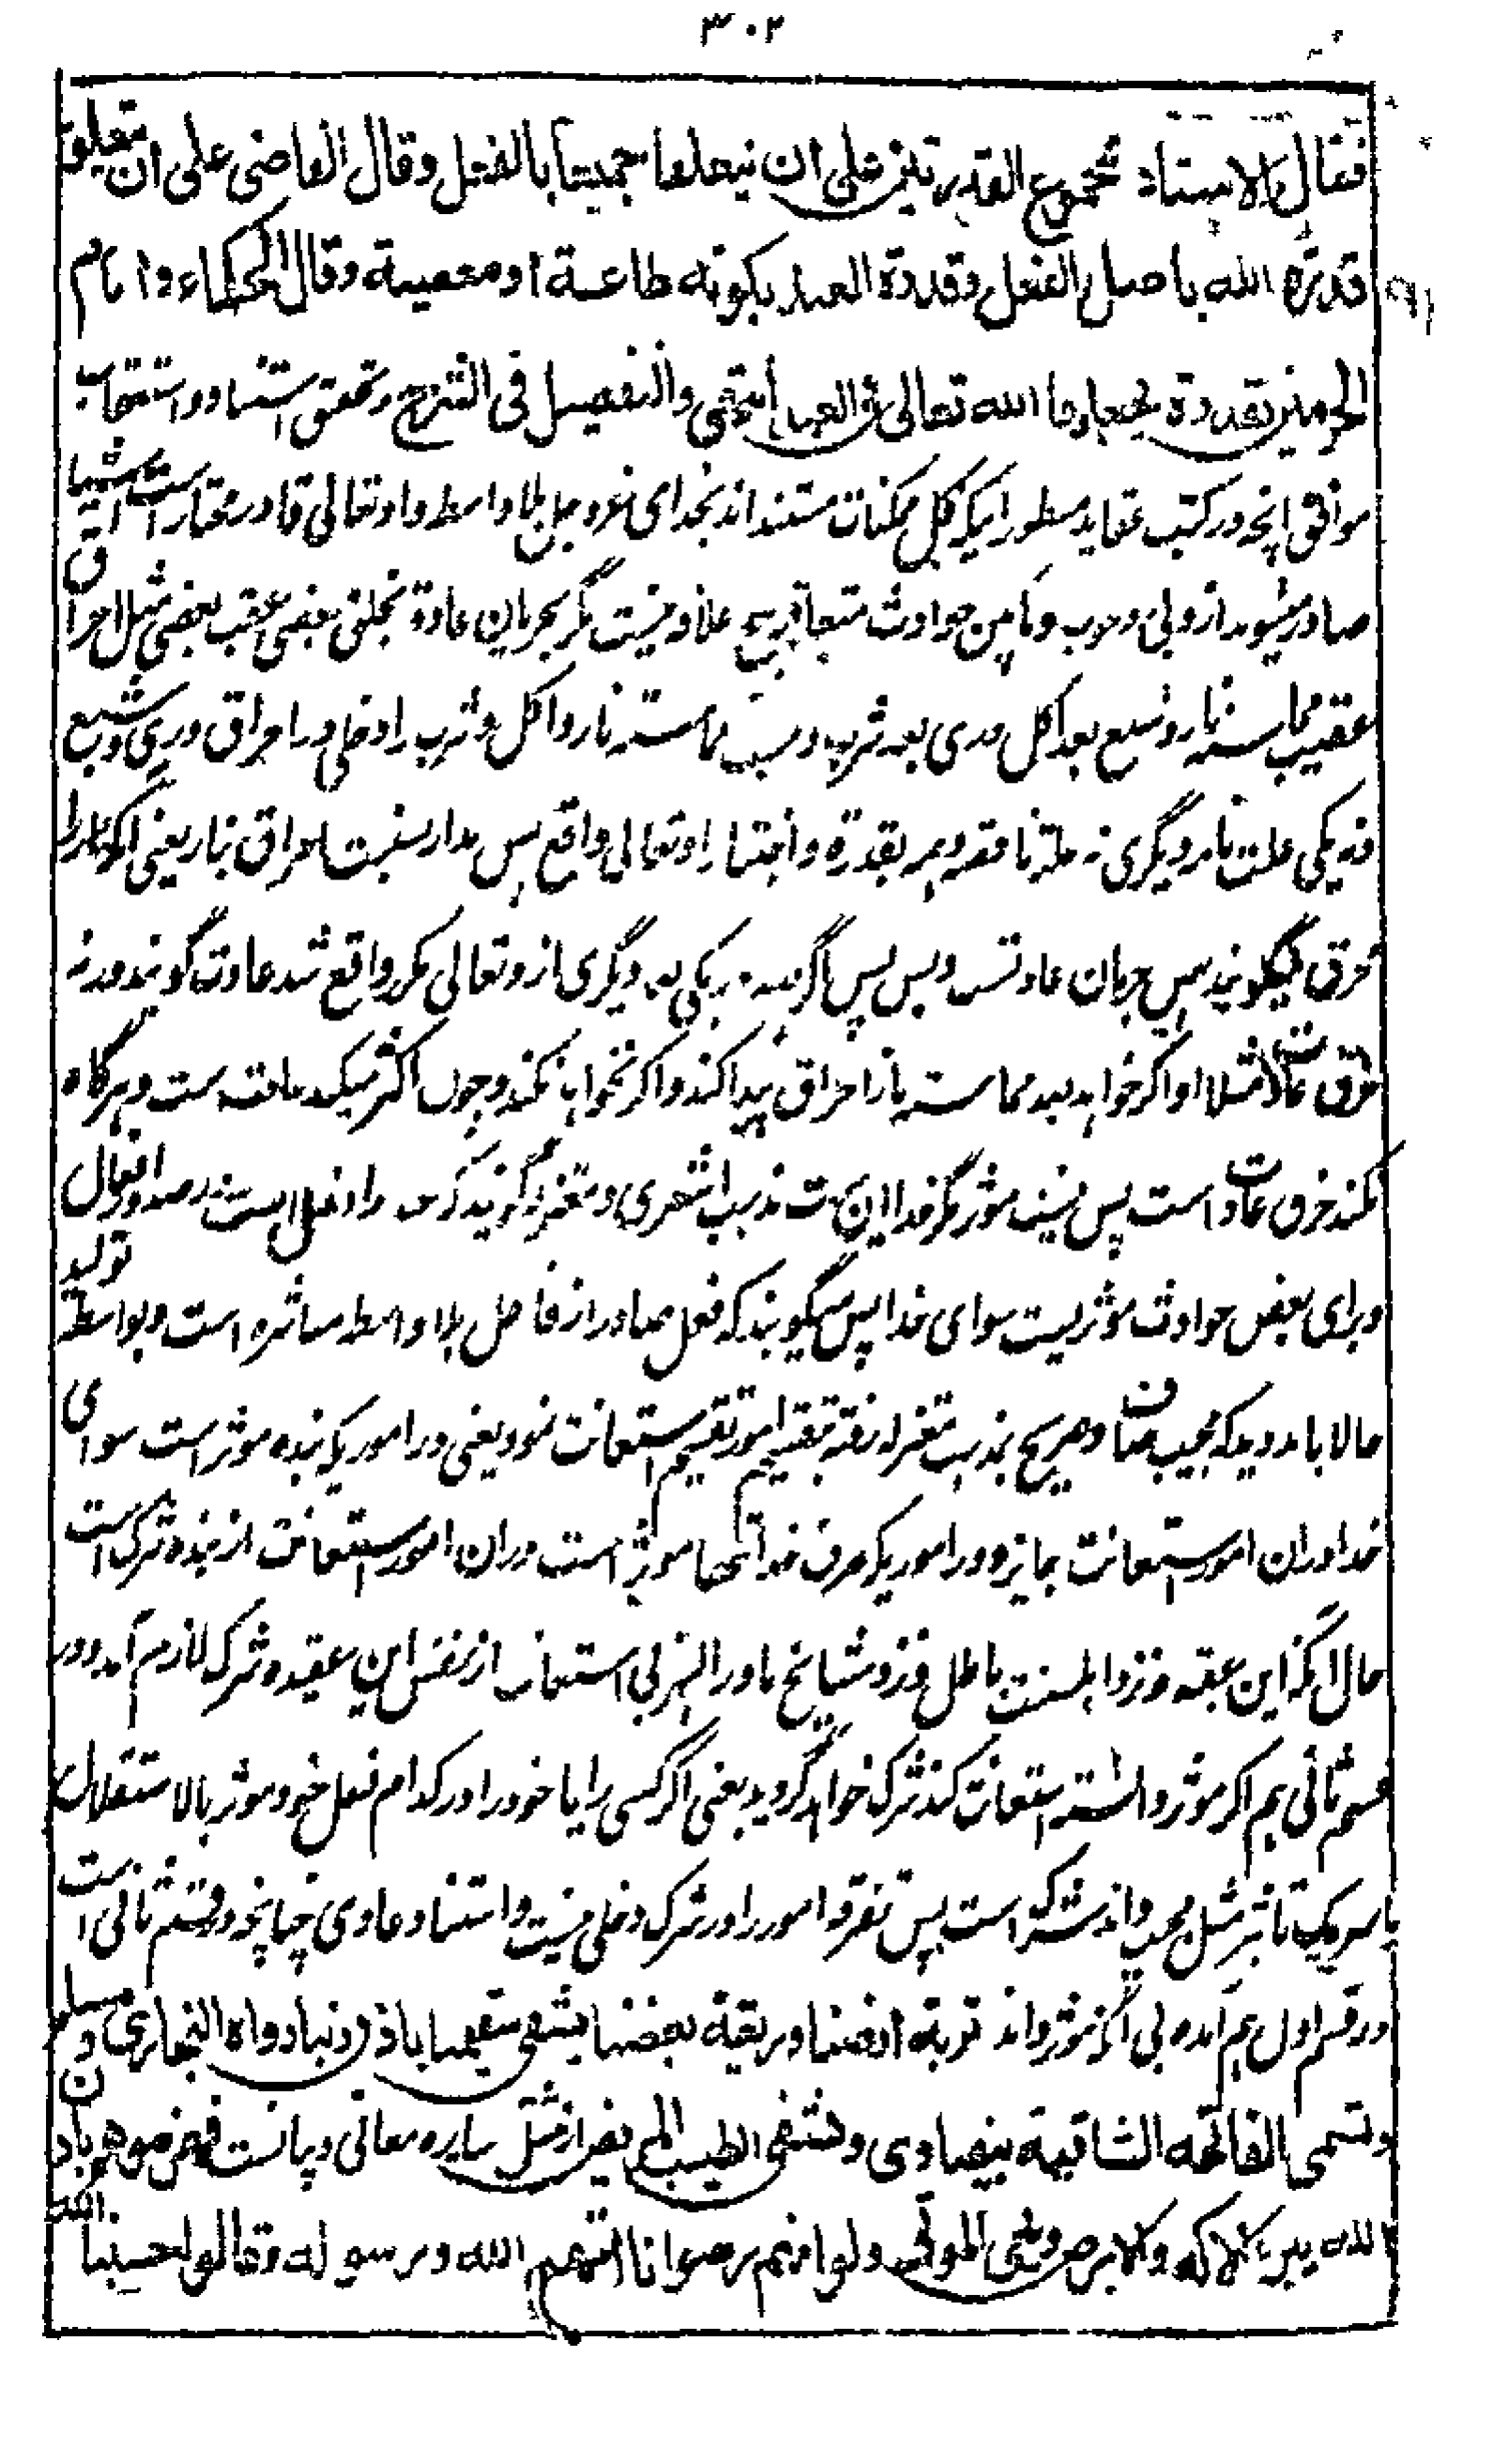 ۳۰۲
فقال الاستاد بمجموع القدرتين على ان يتعلقا جميعا بالفعل وقال القاضى على ان يتعلق
قدرة الله باصل الفعل وقدرة العبد بكونه طاعة او معصية وقال الحكماء وامام
الحرمين بقدرة يخلقها الله تعالى فى العبد انتهى والتفصيل فى الشرح وتحقق استناد و استعقاب
موافق انچه در کتب عقاید مسطور اینکه کل ممکنات مستند اند بخدای عزوجل بلا واسطه و او تعالی قادر مختارست اشیا
صادر میشوند از وبلی وجوب و مابین حوادث متعاقبه هیچ علاقه نیست مگر بجریان عادة بخلق بعضی عقب بعضی مثل احراق
عقیب مماسة نار و شبع بعد اکل و ری بعد شرب و نیست مماسة نار و اکل و شرب را دخلی در احراق و ری و شبع
نه یکی علت تامه و دیگری نه علة ناقصه و همه بقدرة و اختیار او تعالی واقع پس مدار نسبت احراق بنار یعنی اگو نار را
محرق میگویند پس جریان عادتست و بس پس اگر یکی بعد دیگری از و تعالی مکرر واقع شد عادت گویند ورنه
خرق عادت مثلا او اگر خواهد بعد مماسة نار احراق پیدا کند و اگر نخواهد نکند و چون اکثر میکند عادتست و هرگاه
نکند خرق عادت است پس نیست موثر مگر خدا این ست مذهب اشعری و معتزله گویند که را دخل است در صدور افعال
و برای بعض حوادث موثریست سوای خدا پس میگویند که فعل صادر از فاعل بلا واسطه مباشره است و بواسطه تولید
حالا باید دید که مجیب صاف و صریح بمذهب معتزله رفته بتقسیم امور تقسیم استعانت نمود یعنی در اموریکه بنده موثر است سوای
خدا دران امور استعانت جایز و در اموریکه صرف خدا تنها موثر است دران امور استعانت از بنده شرک است
حال آنکه این عقیده نزد اهلسنت باطل و نزد مشایخ ماوراءالنهر بی استعانت از نفس این عقیده شرک لازم آمد و در
قسم ثانی هم اگر موثر دانسته استعانت کند شرک خواهد گردید یعنی اگر کسی را یا خود را در کدام فعل خود موثر بالاستقلال
یا شریک تاثیر مثل موجب داند شرک است پس تفرقه امور را در شرک دخلی نیست و استناد عادی چنانچه در قسم ثانی است
در قسم اول هم آمده بلی اگر موثر داند تربة ارضنا وريقة بعضنا يشفى سقيمنا باذن ربنا رواه البخارى و مسلم
وتسمى الفاتحة الشافية بيضاوى وشفى الطبيب المريض از مثل سایره معانی و بیانست فمن صوهم باذن
الله يبرئ الاكمه والابرص ويحيى الموتى ولو انهم رضوا ما اتهم الله ورسوله وقالوا حسبنا الله